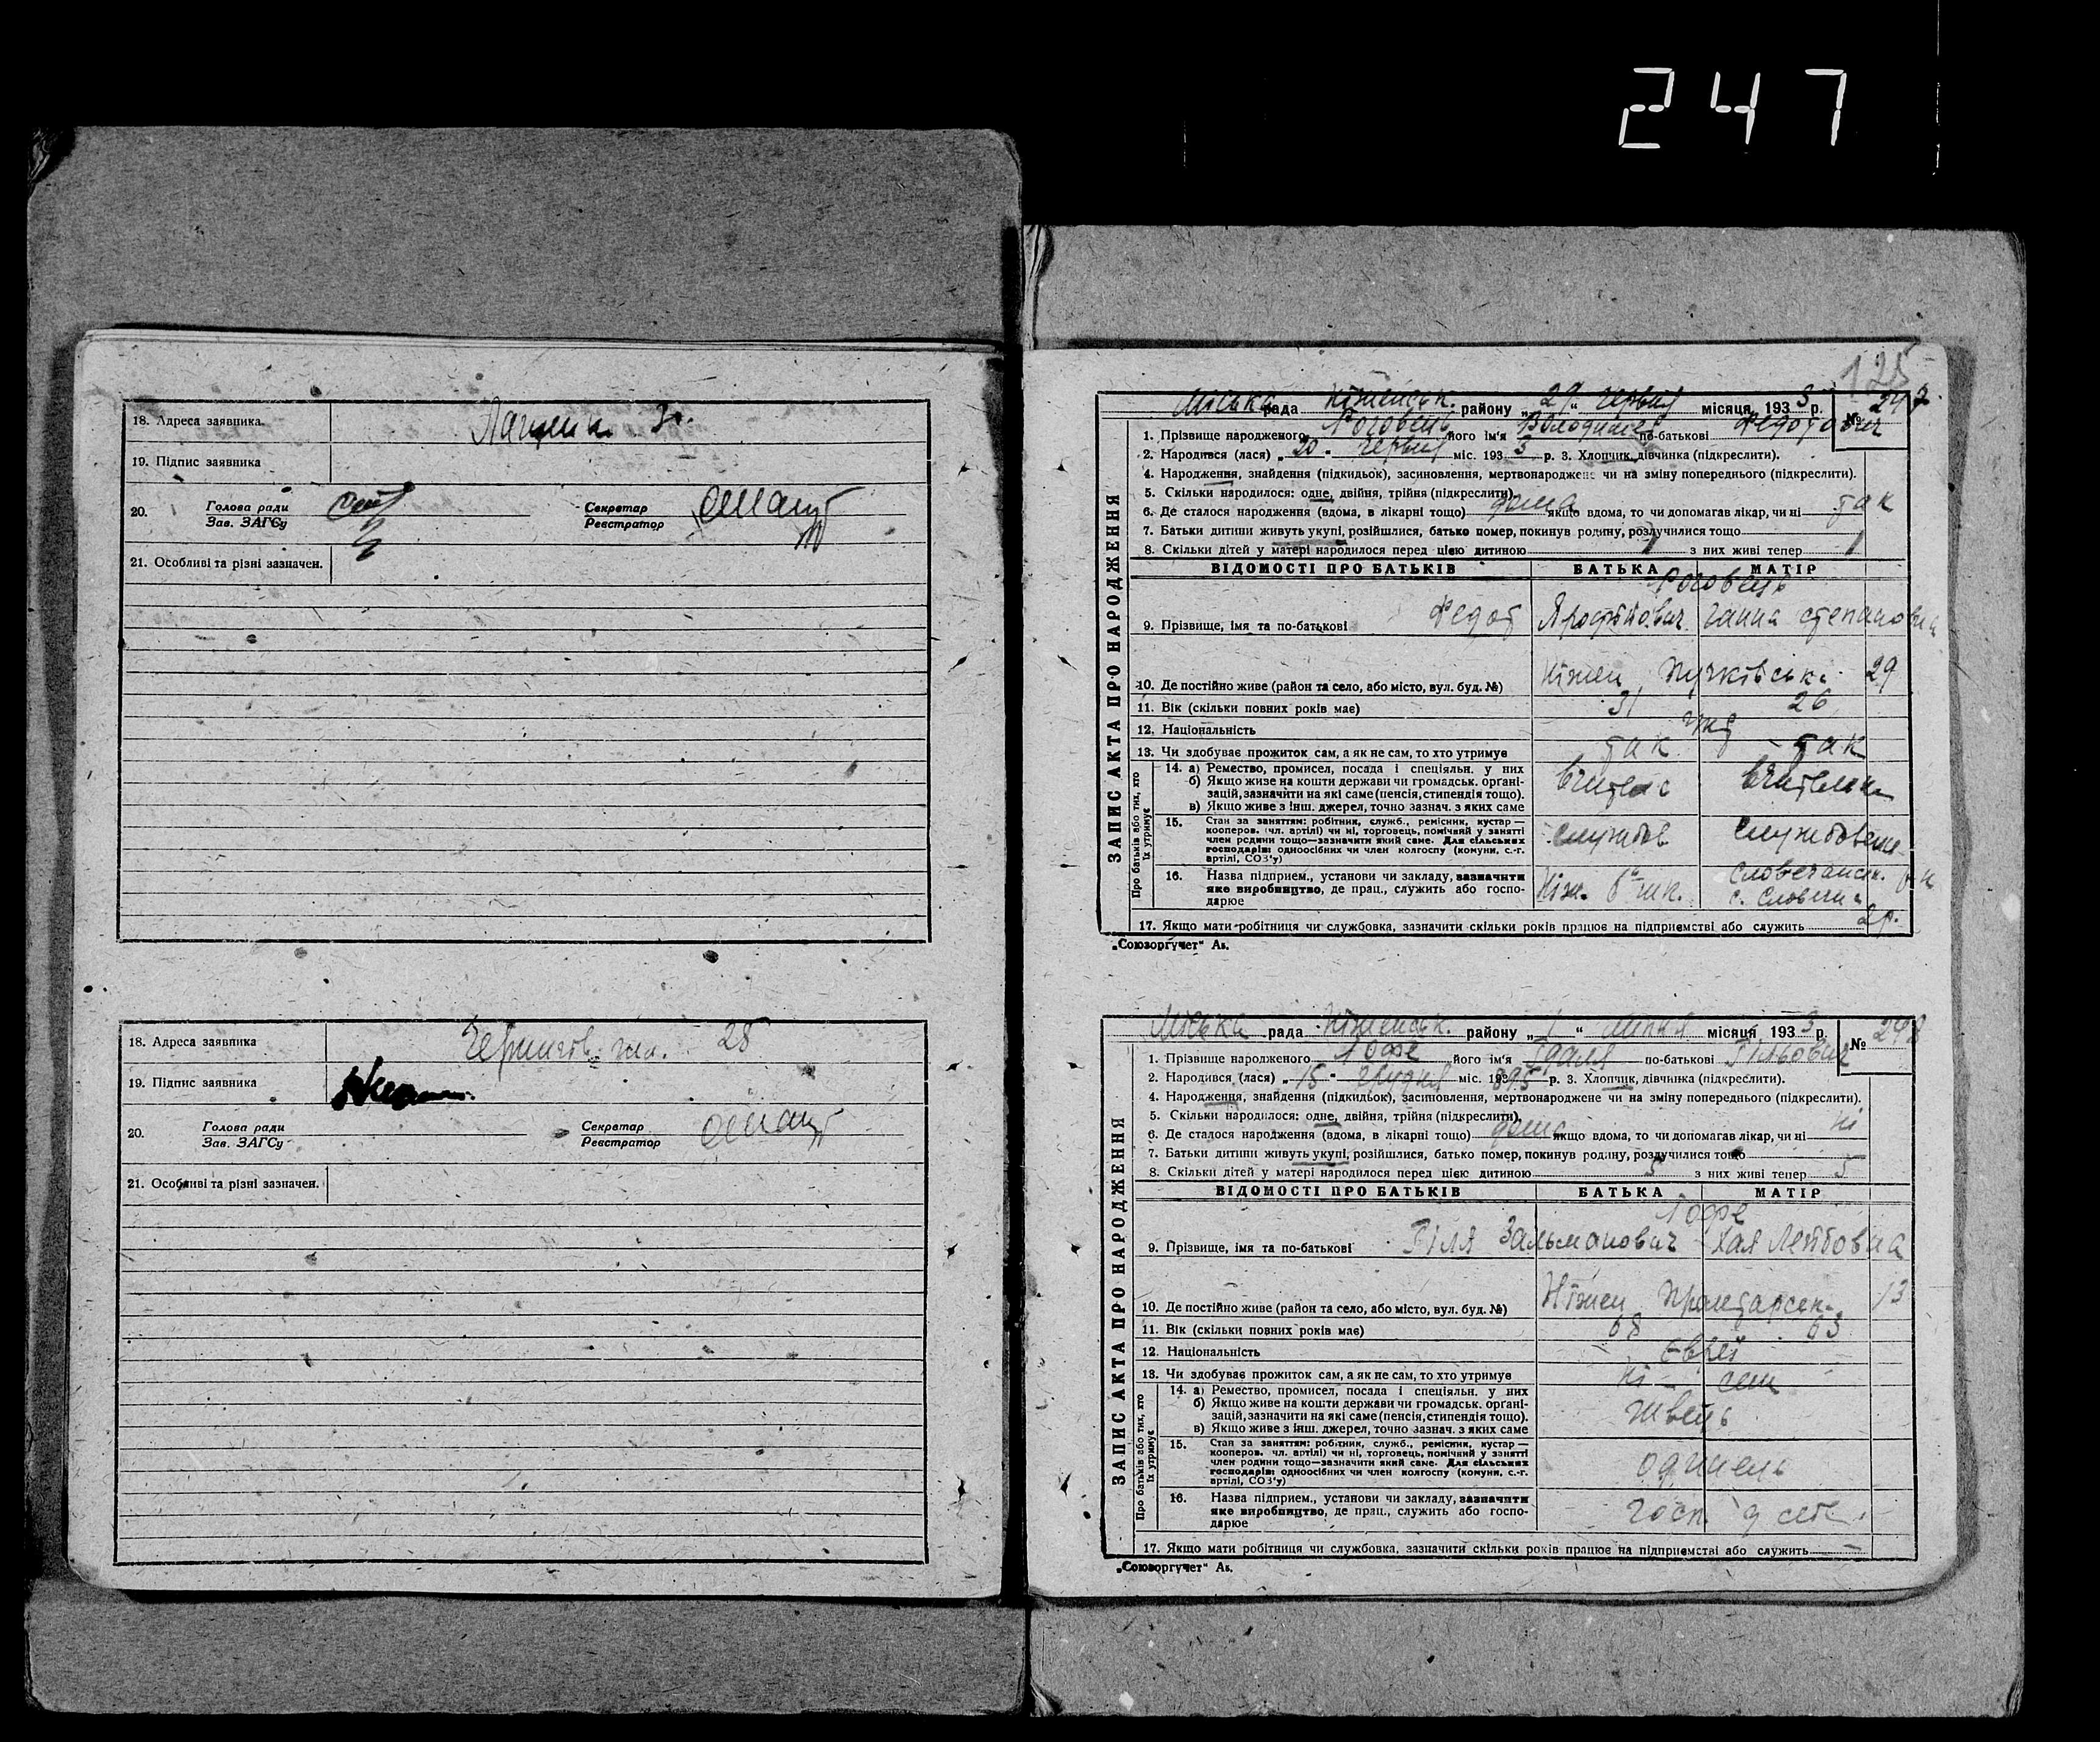 247
18. Адреса заявника
19. Підпис заявника
20. Голова ради Секретар
Зав. ЗАГСу Реєстратор
21. Особливі та різні зазначен.
18. Адреса заявника Чернигов 28
19. Підпис заявника
20. Голова ради Секретар
Зав. ЗАГСу Реєстратор
21. Особливі та різні зазначен.
125
ЗАПИС АКТА ПРО НАРОДЖЕННЯ
Міська рада Ніженськ. району „29“ червня місяця 1933 р. № 247
1. Прізвище народженого Роговець його ім'я Володимир по-батькові Федотович
2. Народився (лася) „20“ червня міс. 1933 р. 3. Хлопчик, дівчинка (підкреслити).
4. Народження, знайдення (підкидьок), засиновлення, мертвонароджене чи на зміну попереднього (підкреслити).
5. Скільки народилося: одне, двійня, трійня (підкреслити)
6. Де сталося народження (вдома, в лікарні тощо) дома якщо вдома, то чи допомагав лікар, чи ні так
7. Батьки дитини живуть укупі, розійшлися, батько помер, покинув родину, розлучилися тощо
8. Скільки дітей у матері народилося перед цією дитиною 1 з них живі тепер 1
ВІДОМОСТІ ПРО БАТЬКІВ БАТЬКА МАТІР
Роговець
9. Прізвище, імя та по-батькові Федот Ганна Степановна
10. Де постійно живе (район та село, або місто, вул. буд. №) Ніжен 29
11. Вік (скільки повних років має) 31 26
12. Національність укр
13. Чи здобуває прожиток сам, а як не сам, то хто утримує так так
Про батьків або тих, хто їх утримує
14. а) Ремество, промисел, посада і спеціяльн. у них
б) Якщо живе на кошти держави чи громадськ. органі-
зацій, зазначити на які саме (пенсія, стипендія тощо).
в) Якщо живе з інш. джерел, точно зазнач. з яких саме
вчитель вчителька
15. Стан за заняттям: робітник, служб., ремісник, кустар—
кооперов. (чл. артілі) чи ні, торговець, помічний у занятті
член родини тощо—зазначити який саме. Для сільських
господарів: одноосібних чи член колгоспу (комуни, с.-г.
артілі, СОЗ'у)
службов
16. Назва підприєм., установи чи закладу, зазначити
яке виробництво, де прац., служить або госпо-
дарює
Ніж. 6 шк.
17. Якщо мати робітниця чи службовка, зазначити скільки років працює на підприємстві або служить 2 р.
„Союзоргучет“ Ав.
ЗАПИС АКТА ПРО НАРОДЖЕННЯ
Міська рада Ніженськ. району „1“ липня місяця 1933 р. № 248
1. Прізвище народженого Іофе його ім'я по-батькові Гільович
2. Народився (лася) „15“ грудня міс. 1895 р. 3. Хлопчик, дівчинка (підкреслити).
4. Народження, знайдення (підкидьок), засиновлення, мертвонароджене чи на зміну попереднього (підкреслити).
5. Скільки народилося: одне, двійня, трійня (підкреслити)
6. Де сталося народження (вдома, в лікарні тощо) дома якщо вдома, то чи допомагав лікар, чи ні ні
7. Батьки дитини живуть укупі, розійшлися, батько помер, покинув родину, розлучилися тощо
8. Скільки дітей у матері народилося перед цією дитиною 5 з них живі тепер 5
ВІДОМОСТІ ПРО БАТЬКІВ БАТЬКА МАТІР
Іофе
9. Прізвище, імя та по-батькові Гіля Зальманович Хая Лейбовна
10. Де постійно живе (район та село, або місто, вул. буд. №) Ніжен Пролетарськ. 13
11. Вік (скільки повних років має) 68 63
12. Національність Євреї
13. Чи здобуває прожиток сам, а як не сам, то хто утримує ні
Про батьків або тих, хто їх утримує
14. а) Ремество, промисел, посада і спеціяльн. у них
б) Якщо живе на кошти держави чи громадськ. органі-
зацій, зазначити на які саме (пенсія, стипендія тощо).
в) Якщо живе з інш. джерел, точно зазнач. з яких саме
швець
15. Стан за заняттям: робітник, служб., ремісник, кустар—
кооперов. чл. артілі) чи ні, торговець, помічний у занятті
член родини тощо—зазначити який саме. Для сільських
господарів: одноосібних чи член колгоспу (комуни, с.-г.
артілі, СОЗ'у)
16. Назва підприєм., установи чи закладу, зазначити
яке виробництво, де прац., служить або госпо-
дарює
госп.
17. Якщо мати робітниця чи службовка, зазначити скільки років працює на підприємстві або служить
„Союзоргучет“ Ав.